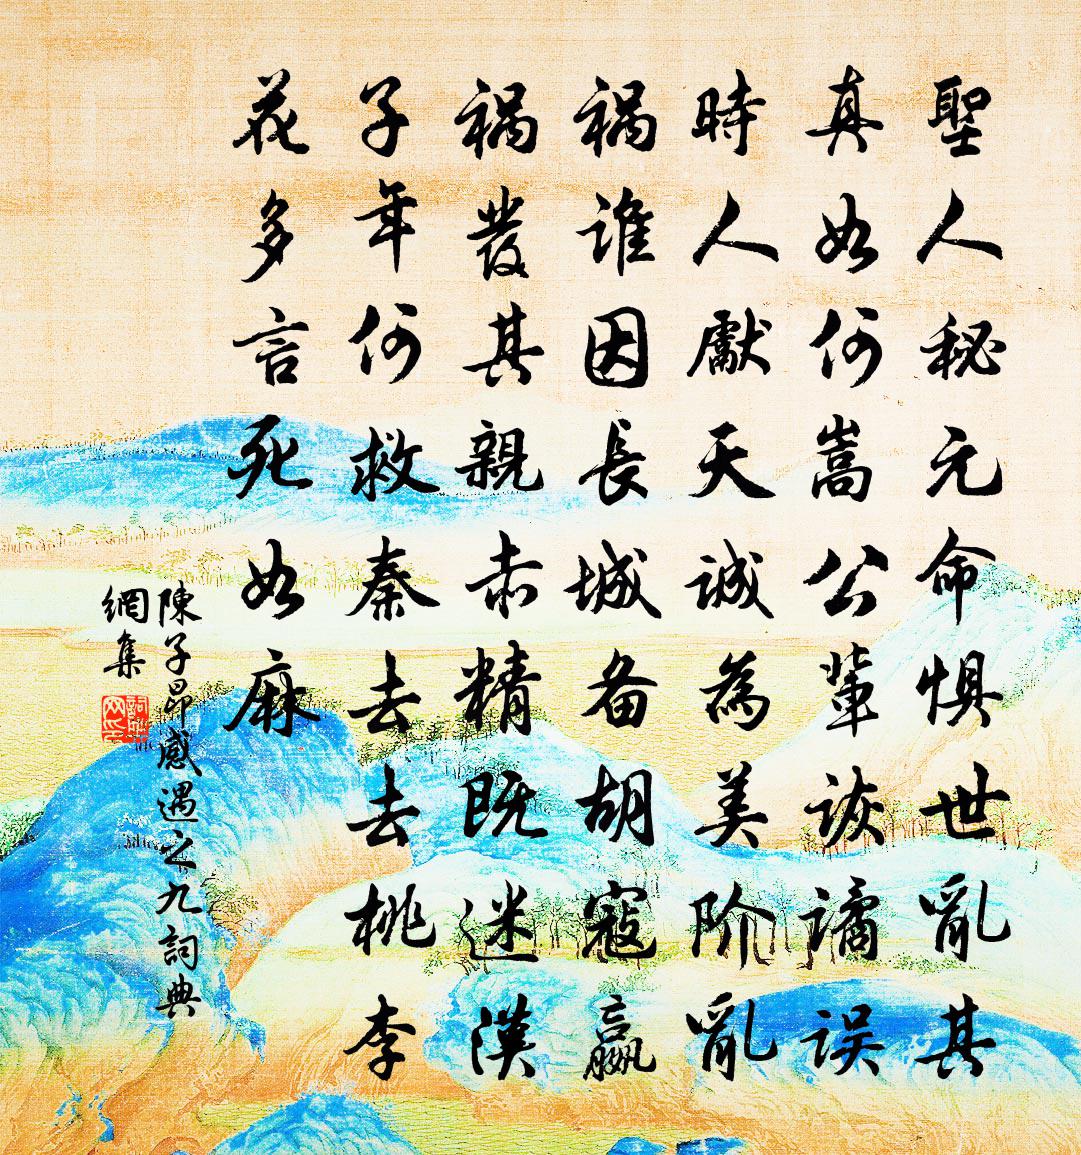 聖人秘元命惧世亂其
真如何嵩公輩詼譎误
時人獻天誠為美阶亂
祸谁因長城备胡寇嬴
祸發其親赤精既迷漢
子年何救秦去去桃李
花多言死如麻
陳子昂感遇之九詞典
網集